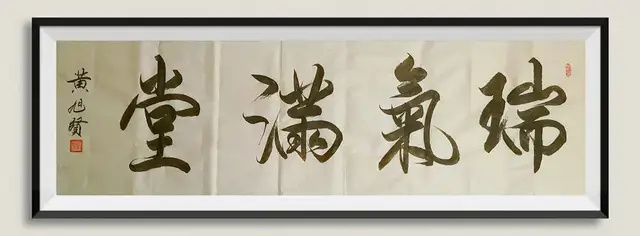 瑞氣滿堂
黃旭賢